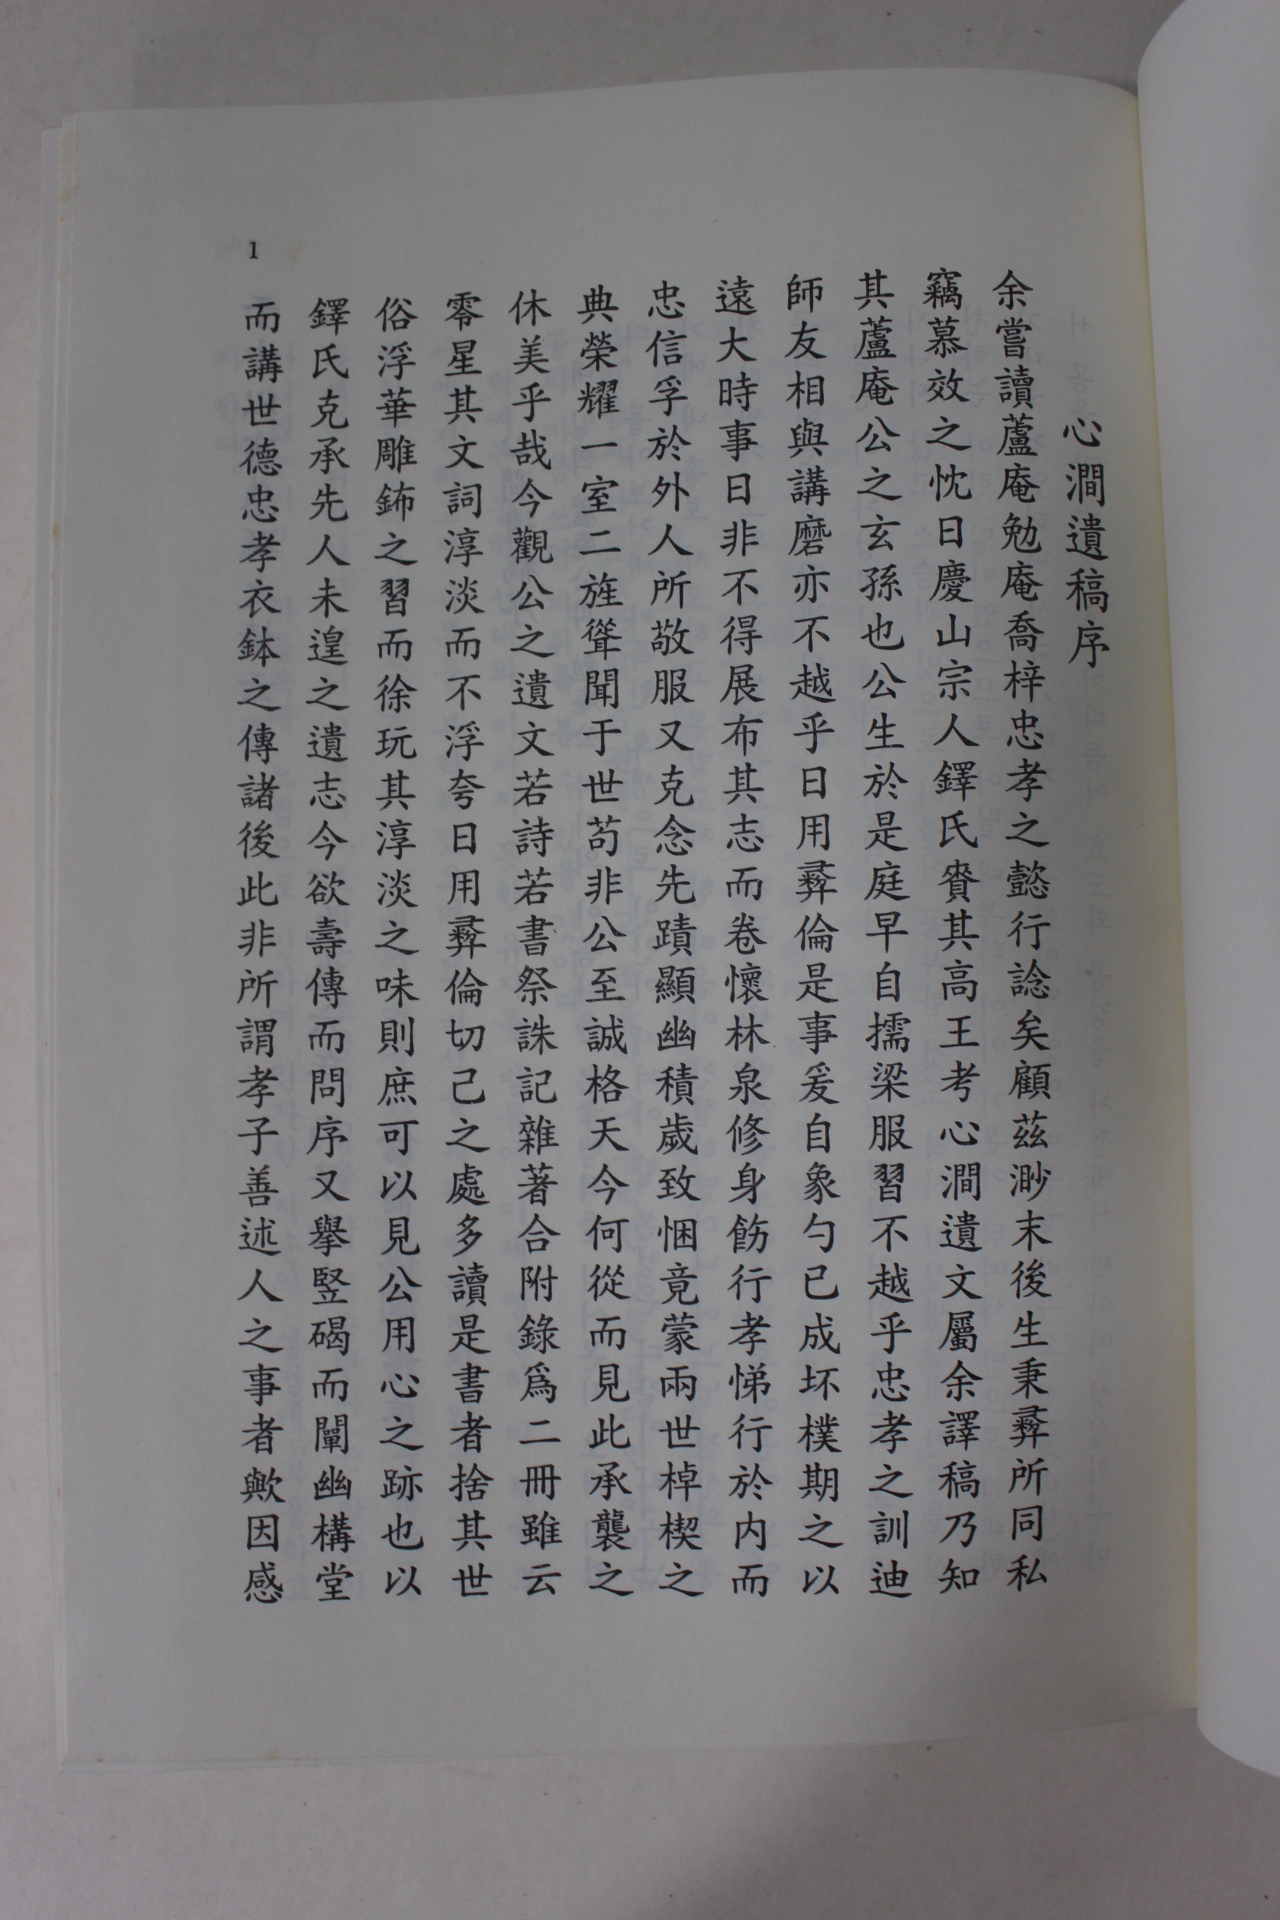 心澗遺稿序
余嘗讀蘆庵勉庵喬梓忠孝之懿行諗矣顧茲渺末後生秉彛所同私
竊慕效之忱日慶山宗人鐸氏賚其高王考心澗遺文屬余譯稿乃知
其蘆庵公之玄孫也公生於是庭早自擩梁服習不越乎忠孝之訓迪
師友相與講磨亦不越乎日用彛倫是事爰自象勺已成坏樸期之以
遠大時事日非不得展布其志而卷懷林泉修身飭行孝悌行於内而
忠信孚於外人所敬服又克念先蹟顯幽積歲致悃竟蒙兩世棹楔之
典榮耀一室二旌聳聞于世苟非公至誠格天今何從而見此承襲之
休美乎哉今觀公之遺文若詩若書祭誄記雜著合附錄爲二冊雖云
零星其文詞淳淡而不浮夸日用彛倫切己之處多讀是書者捨其世
俗浮華雕鈽之習而徐玩其淳淡之味則庶可以見公用心之跡也以
鐸氏克承先人未遑之遺志今欲壽傳而問序又擧竪碣而闡幽構堂
而講世德忠孝衣鉢之傳諸後此非所謂孝子善述人之事者歟因感
1